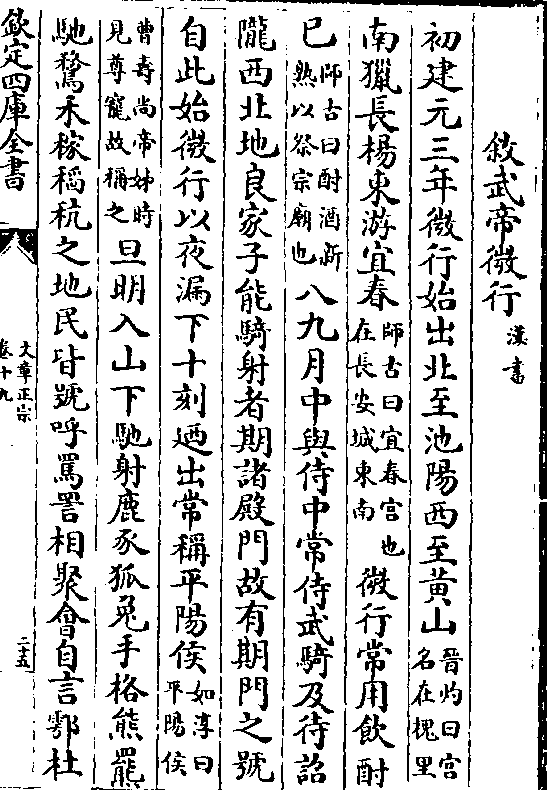 敘武帝微行漢書
初建元三年微行始出北至池陽西至黃山晉灼曰宮名在槐里
南獵長楊東游宜春師古曰宜春宮也在長安城東南微行常用飲酎
已師古曰酎酒新熟以祭宗廟也八九月中與侍中常侍武騎及待詔
隴西北地良家子能騎射者期諸殿門故有期門之號
自此始微行以夜漏下十刻廼出常稱平陽侯如淳曰平陽侯
曹壽尚帝姊時見尊寵故稱之旦明入山下馳射鹿豕狐兔手格熊羆
馳騖禾稼稻秔之地民皆號呼罵詈相聚會自言鄠杜
欽定四庫全書
文章正宗
卷十九
二十五